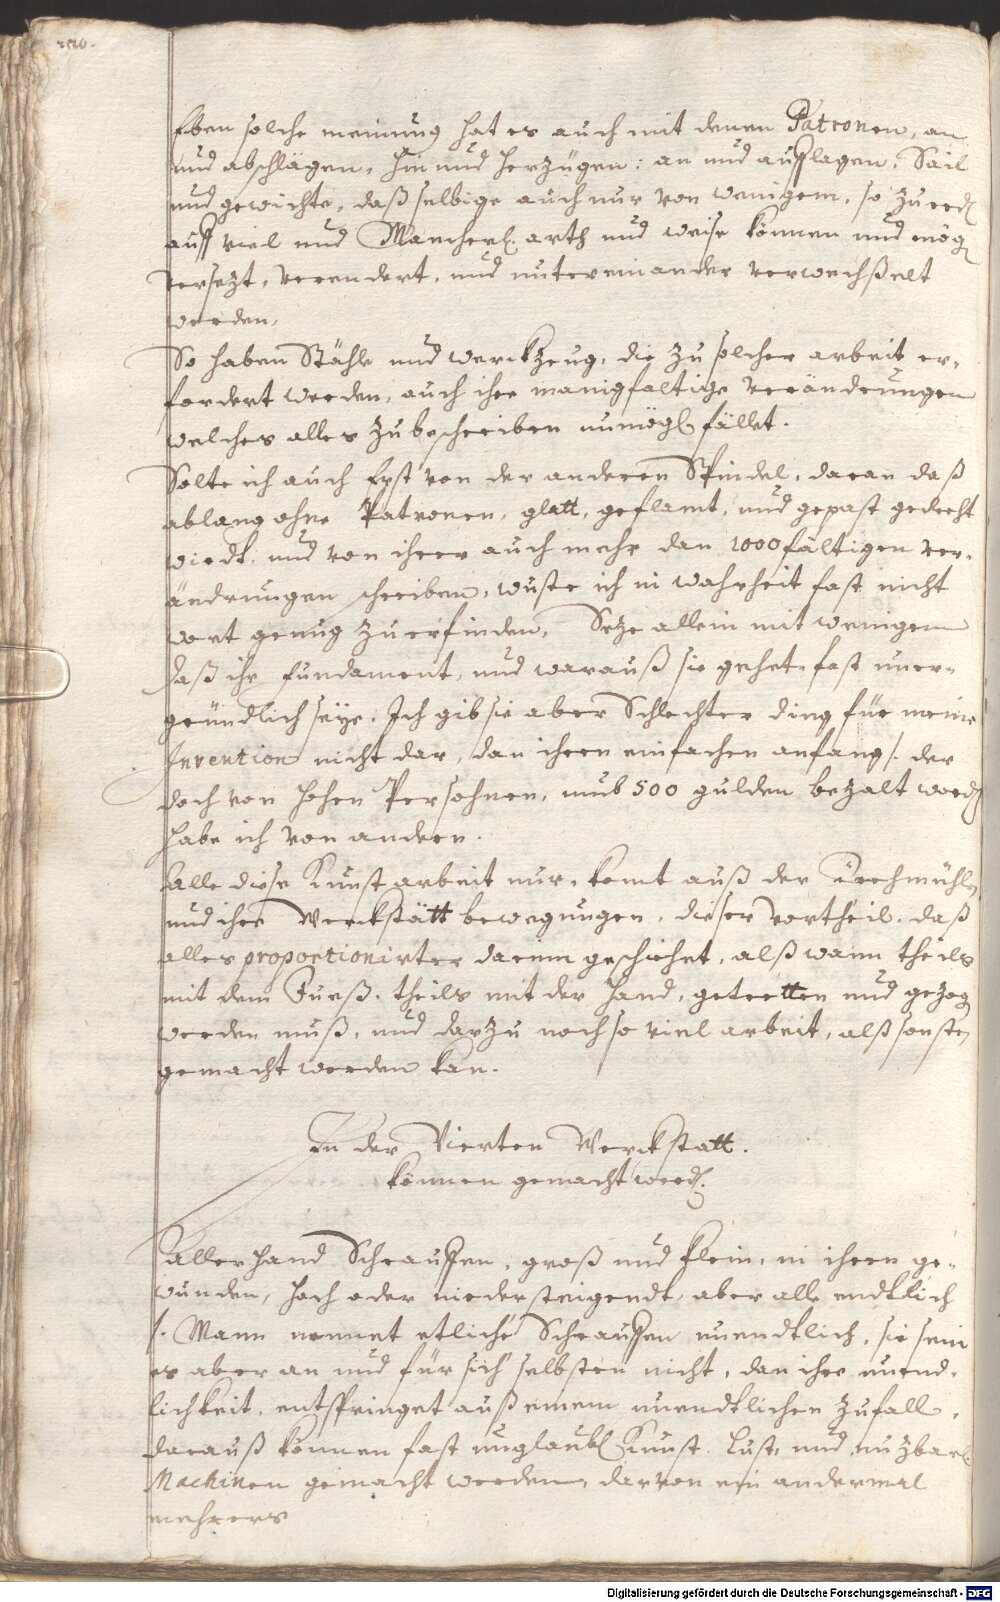 220.
Eben solche meinung hat es auch mit denen Patronen, an
und abschlägen, hin und herzügen: an und aufflagen, Sail
und gewichte, daß selbige auch nur von wenigem, so zu red
auff viel und Mancherl. arth und weise können und mög
versezt, verendert, und untereinander verwechßelt
werden,
So haben Stähle und werckzeug, die zu solcher arbeit er-
fordert werden, auch ihre manigfaltige veränderungen
welches alles zu beschreiben unmögl fället.
Solte ich auch Erst von der anderen Spindel, daran daß
ablang ohne Patronen, glatt, geflamt, und gepast gedreht
wirdt, und von ihrer auch mehr dan 1000fältigen ver-
ändrungen schreiben, wuste ich in wahrheit fast nicht
wort genug zu erfinden, Seze allein mit wenigem
daß ihr fundament, und warauß sie gehet, fast uner-
gründlich seye. Ich gib sie aber Schlechter ding für meine
Invention nicht dar, dan ihren einfachen anfang /. der
doch von hohen Persohnen, umb 500 gulden bezalt word
habe ich von andern.
Alle diese Kunst arbeit nur, komt auß der Drehmühle
und ihre Werckstätt bewegungen, dieser vortheil, daß
alles proportionirter darinn geschiehet, alß wann theils
mit dem Fueß, theils mit der Hand, getretten und gezog
werden muß, und darzu noch so viel arbeit, alß sonsten
gemacht werden kan.
In der Vierten Werckstatt.
können gemacht werd.
Allerhand Schrauffen, groß und klein, in ihren ge-
wunden, hoch oder niedersteigendt, aber alle endtlich
/. Mann nennet etliche Schrauffen unendtlich, sie sein
es aber an und für sich selbsten nicht, dan ihre unend-
lichkeit, entspringet auß einem unendtlichen Zufall,
darauß können fast unglaubl Kunst, Lust, und nuzbarl
Machinen gemacht werden, darvon ein andermal
mehrers
Digitalisierung gefördert durch die Deutsche Forschungsgemeinschaft - DFG